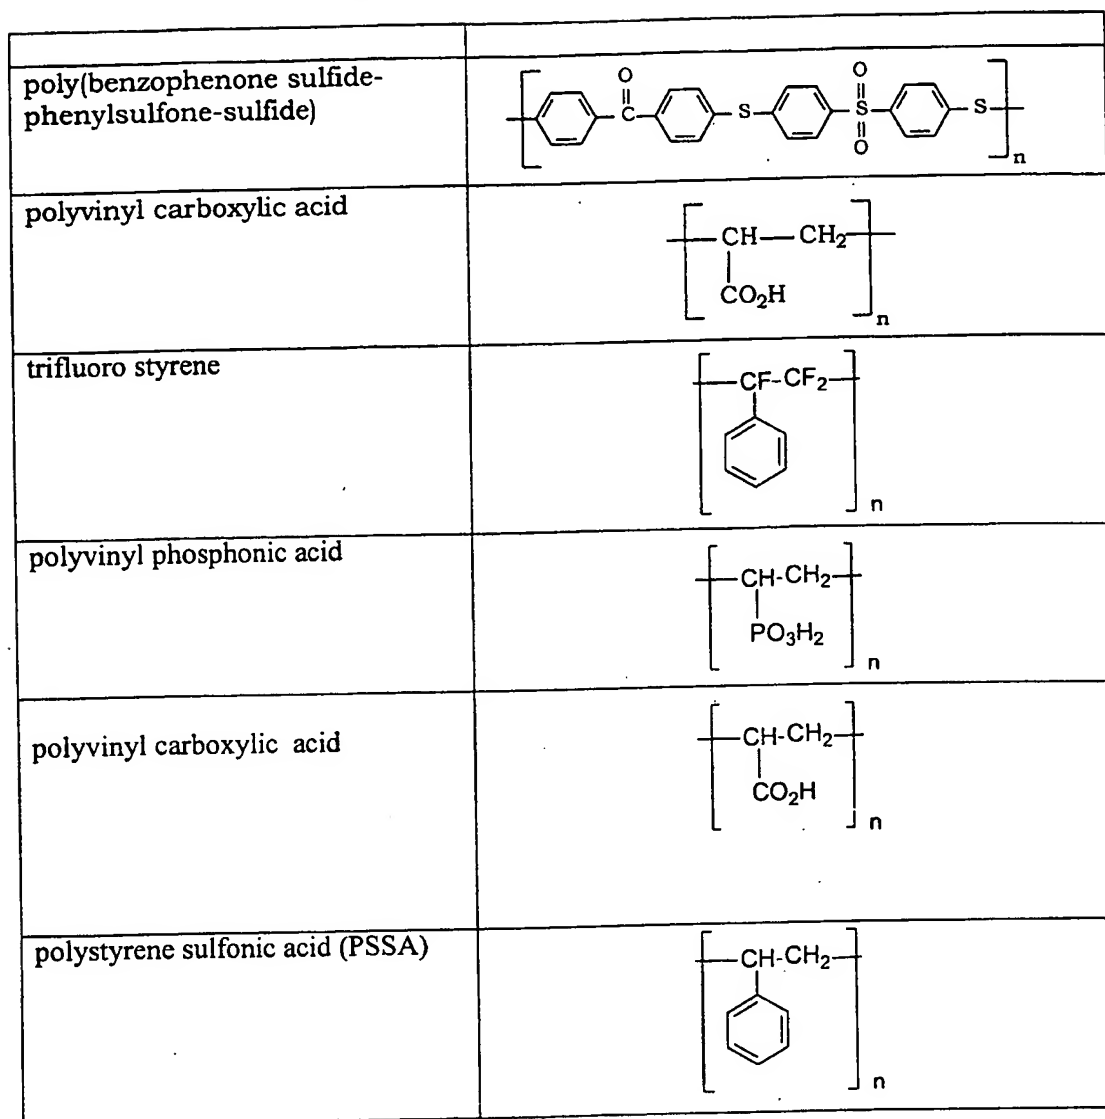 poly(benzophenone sulfide-
phenylsulfone-sulfide)
O
C
S
O
S
O
S
n
polyvinyl carboxylic acid
CH
CH₂
CO₂H
n
trifluoro styrene
CF-CF₂
n
polyvinyl phosphonic acid
CH-CH₂
PO₃H₂
n
polyvinyl carboxylic acid
CH-CH₂
CO₂H
n
polystyrene sulfonic acid (PSSA)
CH-CH₂
n